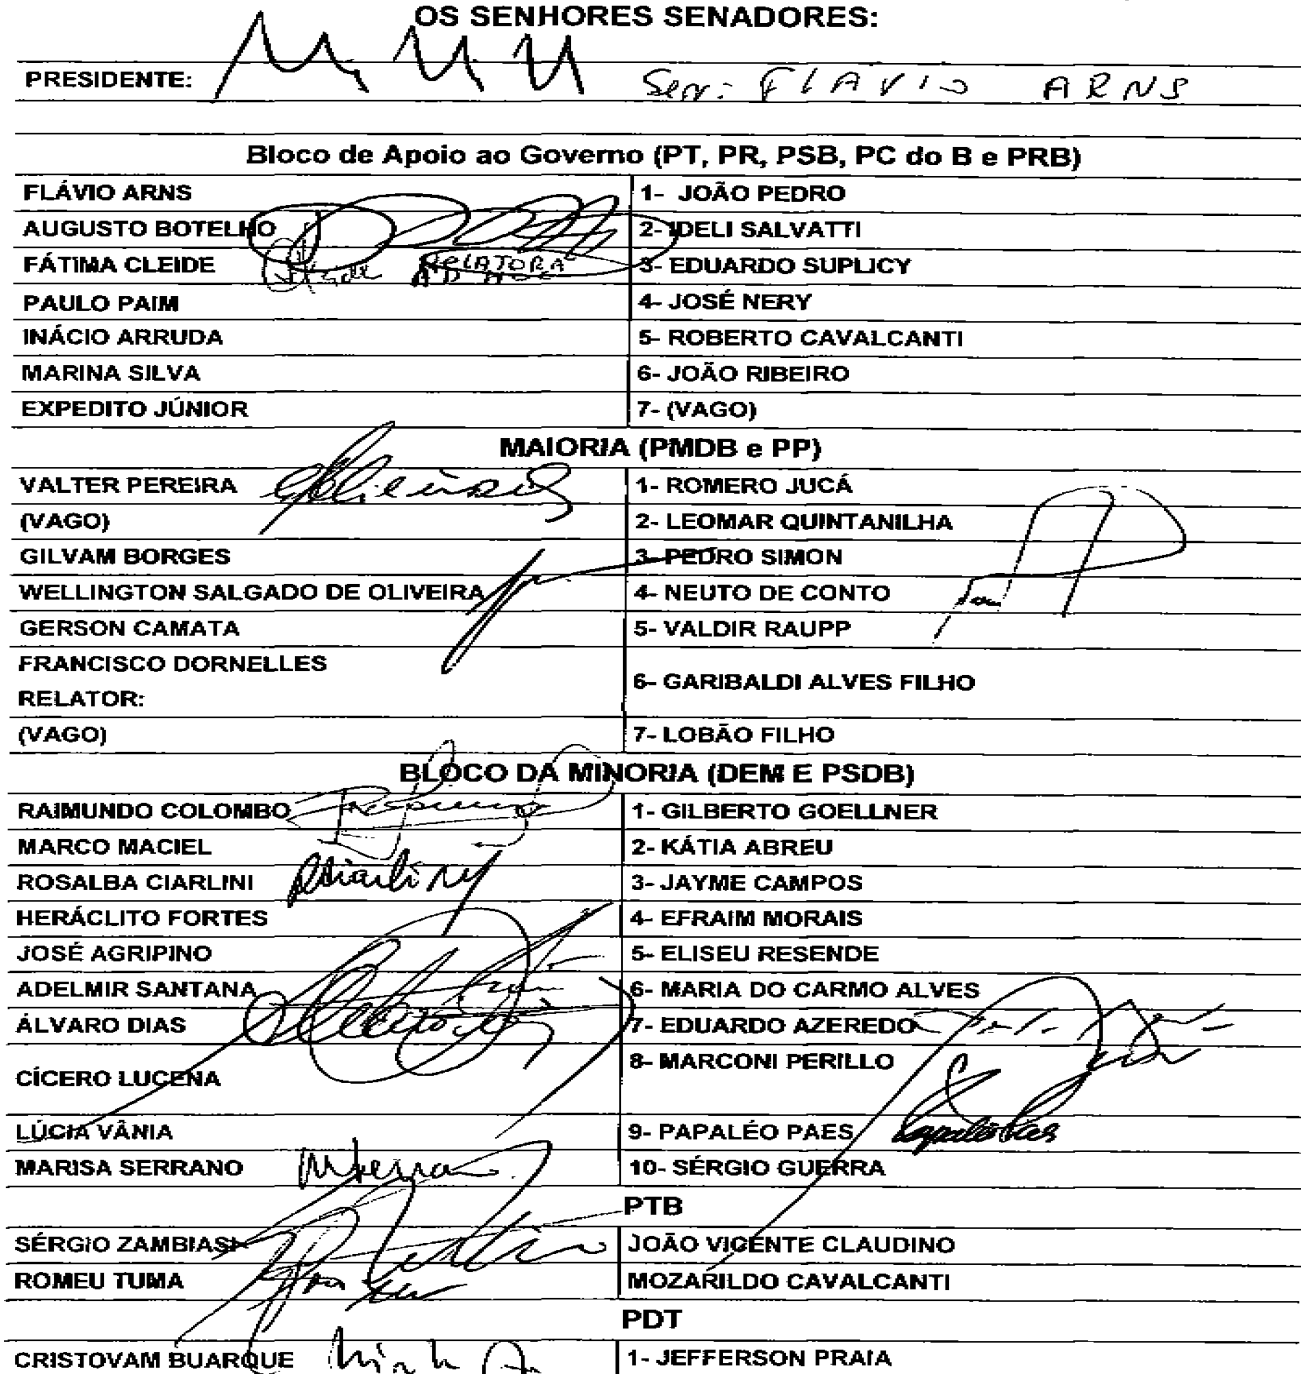 OS SENHORES SENADORES:
PRESIDENTE: Sen: FLAVIO ARNS
Bloco de Apoio ao Governo (PT, PR, PSB, PC do B e PRB)
FLÁVIO ARNS 1- JOÃO PEDRO
AUGUSTO BOTELHO 2- IDELI SALVATTI
FÁTIMA CLEIDE RELATORA AD HOC 3- EDUARDO SUPLICY
PAULO PAIM 4- JOSÉ NERY
INÁCIO ARRUDA 5- ROBERTO CAVALCANTI
MARINA SILVA 6- JOÃO RIBEIRO
EXPEDITO JÚNIOR 7- (VAGO)
MAIORIA (PMDB e PP)
VALTER PEREIRA 1- ROMERO JUCÁ
(VAGO) 2- LEOMAR QUINTANILHA
GILVAM BORGES 3- PEDRO SIMON
WELLINGTON SALGADO DE OLIVEIRA 4- NEUTO DE CONTO
GERSON CAMATA 5- VALDIR RAUPP
FRANCISCO DORNELLES
RELATOR: 6- GARIBALDI ALVES FILHO
(VAGO) 7- LOBÃO FILHO
BLOCO DA MINORIA (DEM E PSDB)
RAIMUNDO COLOMBO 1- GILBERTO GOELLNER
MARCO MACIEL 2- KÁTIA ABREU
ROSALBA CIARLINI 3- JAYME CAMPOS
HERÁCLITO FORTES 4- EFRAIM MORAIS
JOSÉ AGRIPINO 5- ELISEU RESENDE
ADELMIR SANTANA 6- MARIA DO CARMO ALVES
ÁLVARO DIAS 7- EDUARDO AZEREDO
CÍCERO LUCENA 8- MARCONI PERILLO
LÚCIA VÂNIA 9- PAPALÉO PAES
MARISA SERRANO 10- SÉRGIO GUERRA
PTB
SÉRGIO ZAMBIASI JOÃO VICENTE CLAUDINO
ROMEU TUMA MOZARILDO CAVALCANTI
PDT
CRISTOVAM BUARQUE 1- JEFFERSON PRAIA